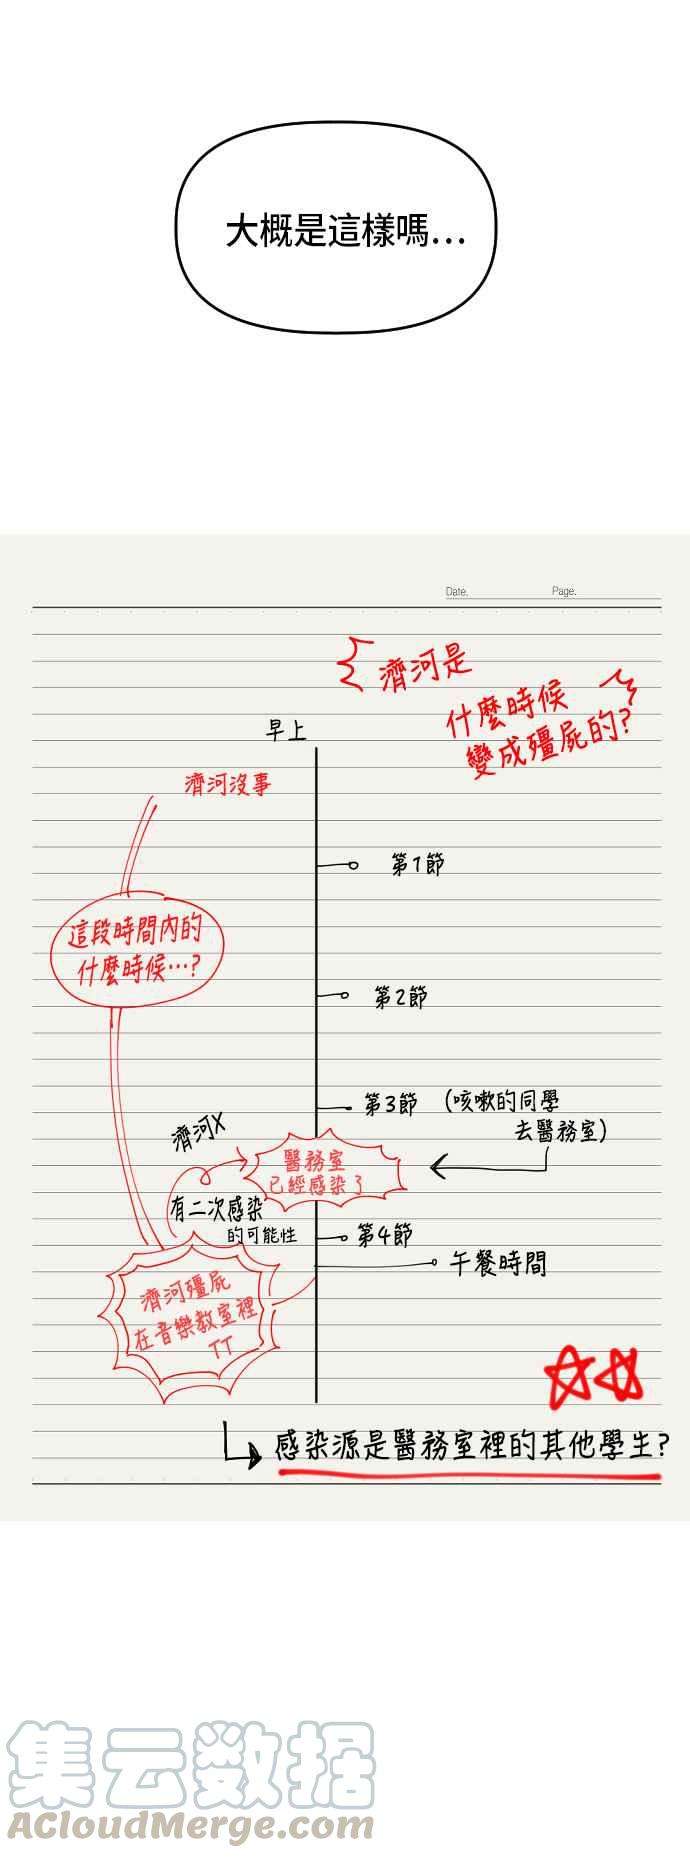 大概是這樣嗎…
Date.
Page.
濟河是
什麼時候
變成殭屍的?
早上
濟河沒事
第1節
這段時間內的
什麼時候…?
第2節
第3節
(咳嗽的同學
去醫務室)
濟河X
醫務室
已經感染了
有二次感染
的可能性
第4節
午餐時間
濟河殭屍
在音樂教室裡
TT
感染源是醫務室裡的其他學生?
集云数据
ACloudMerge.com